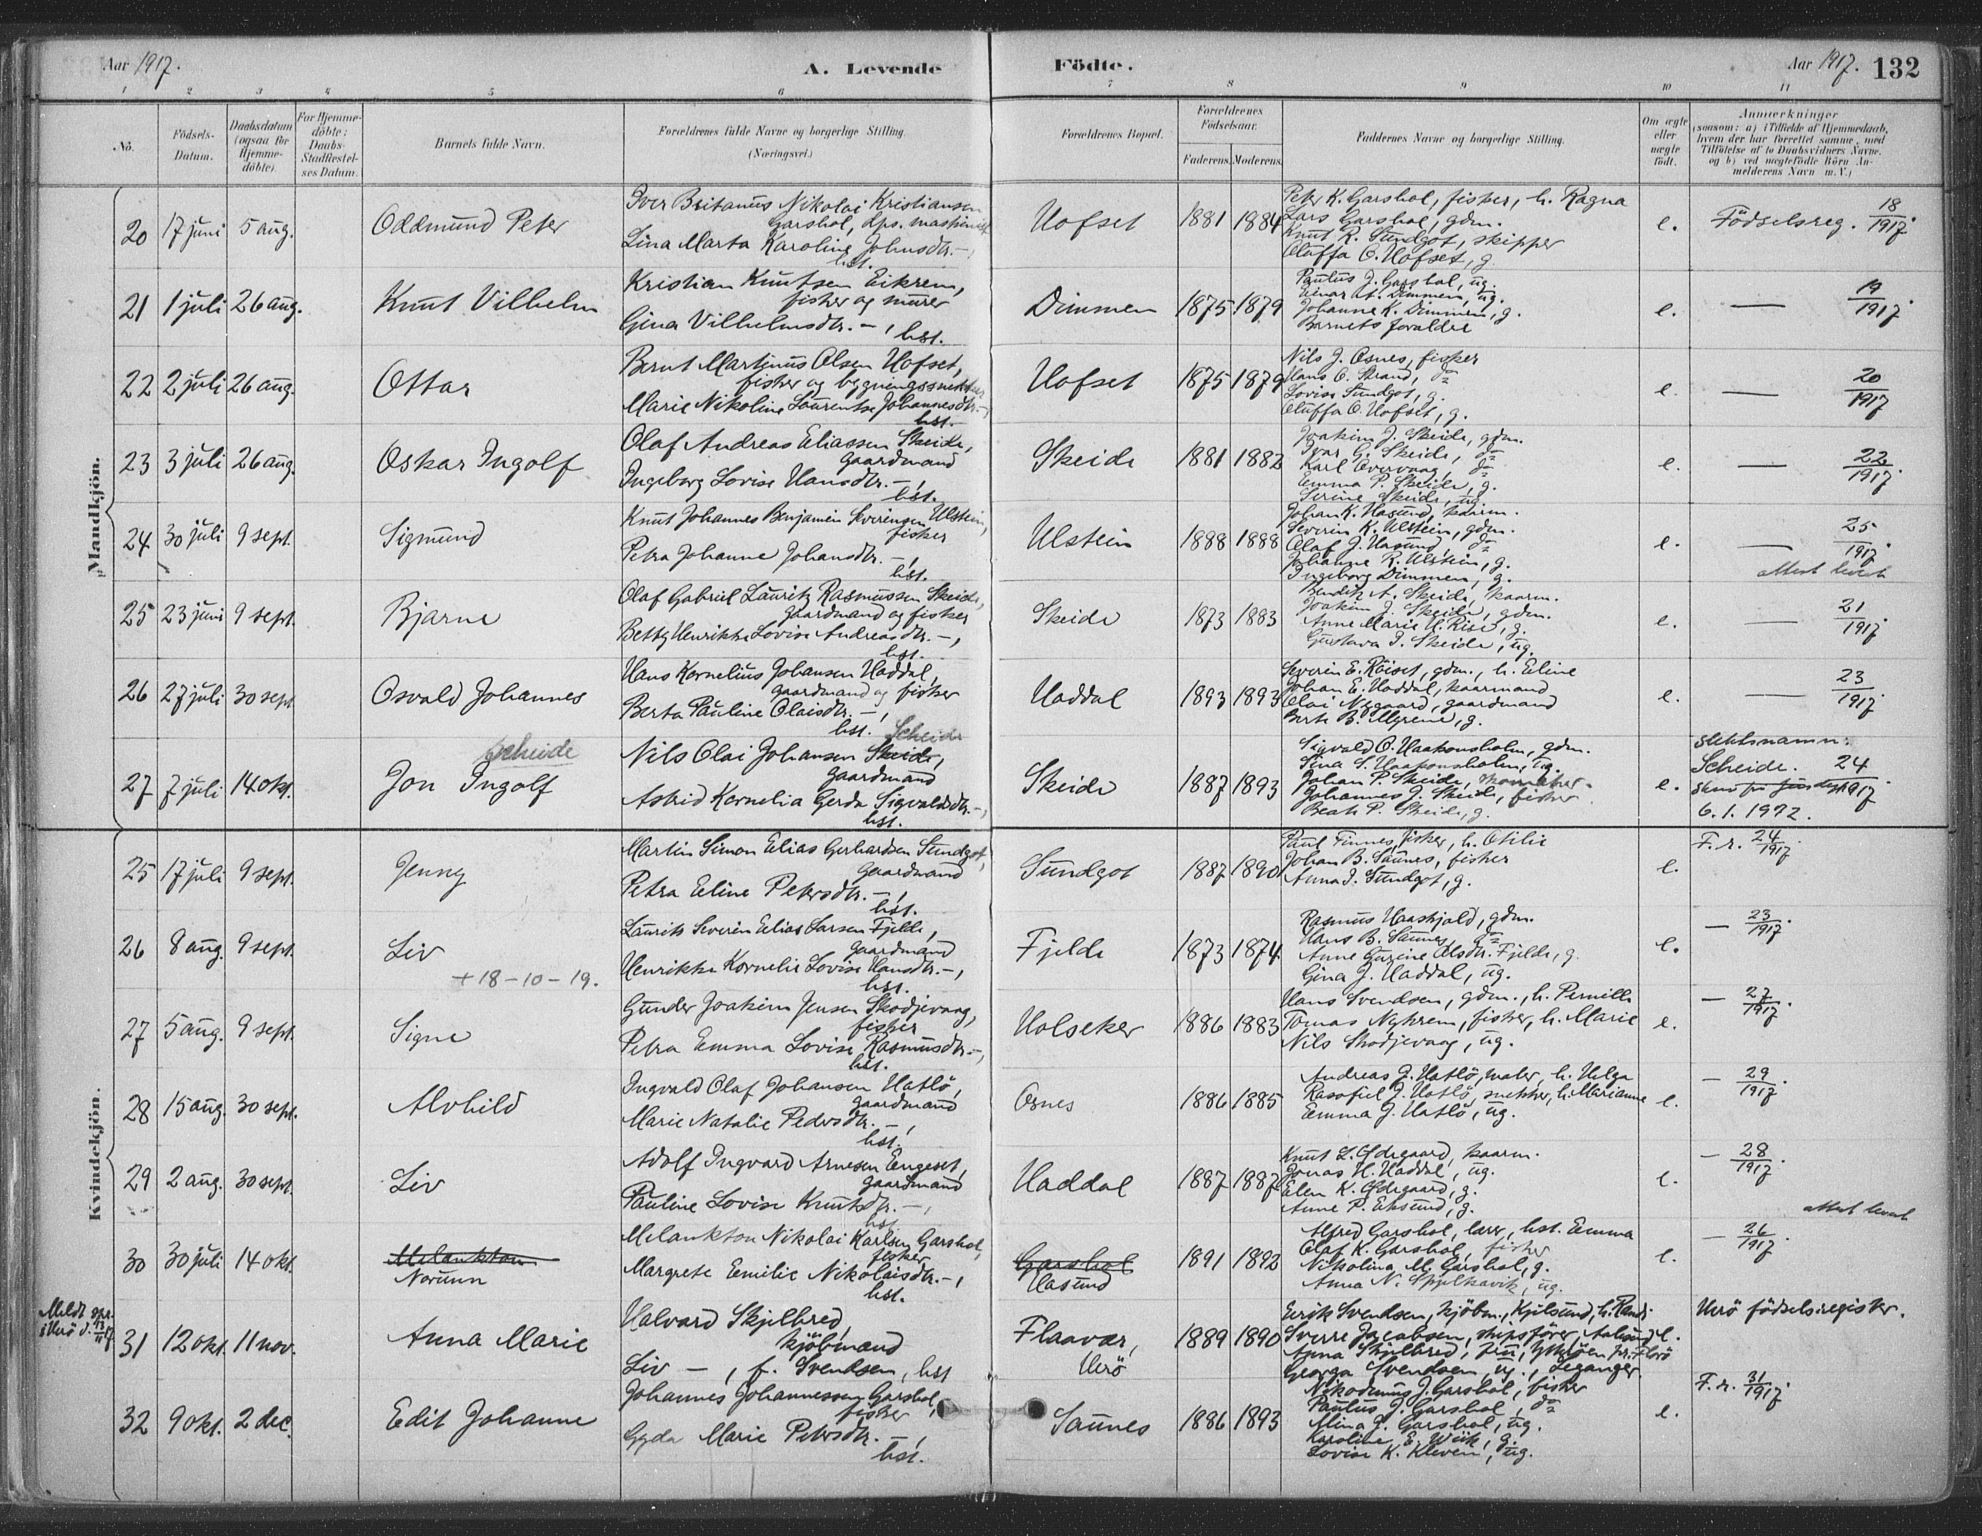 Aar 1917.
A. Levende Födte.
Aar 1917. 132
1 2 3 4 5 6 7 8 9 10 11
No.
Födsels-Datum.
Daabsdatum (ogsaa for Hjemme-döbte).
For Hjemme-döbte: Daabs-Stadfæstel-ses Datum.
Barnets fulde Navn.
Forældrenes fulde Navne og borgerlige Stilling. (Næringsvei.)
Forældrenes Bopæl.
Forældrenes Födselsaar.
Faderens. Moderens.
Faddernes Navne og borgerlige Stilling.
Om ægte eller uægte födt.
Anmærkninger
(saasom: a) i Tilfælde af Hjemmedaab, hvem der har forrettet samme, med Tilföielse af to Daabsvidners Navne, og b) ved uegtefödte Börn An-melderens Navn m.V.)
Mandkjön.
20 17 juni 5 aug. Oddmund Peter
Iver Britanus Nikolai Kristiansen
Garshol, dps. maskinist
Lina Marta Karoline Johnsdtr. —,
hst.
Hofset 1881 1884
Peter K. Garshol, fisker, h. Ragna
Lars Garshol, gdm.
Knut R. Sundgot, skipper
Oluffa O. Hofset, g.
e. Födselsreg. 18/1917.
21 1 juli 26 aug. Knut Vilhelm
Kristian Knutsen Eikrem,
fisker og murer
Gina Vilhelmsdtr. —,
hst.
Dimmen 1875 1879
Paulus J. Garshol, ug.
Einar A. Dimmen, ug.
Johanne K. Dimmen, g.
Barnets foraldre
e. — 19/1917.
22 2 juli 26 aug. Ottar
Bernt Martinus Olsen Hofset,
fisker og bygningssnekker
Marie Nikoline Laurentse Johannesdtr. —,
hst.
Hofset 1875 1879
Nils J. Osnes, fisker
Hans O. Strand, do
Lovise Sundgot, g.
Oluffa O. Hofset, g.
e. — 20/1917
23 3 juli 26 aug. Oskar Ingolf
Olaf Andreas Eliassen Skeide,
gaardmand
Ingeborg Lovise Hansdtr. —,
hst.
Skeide 1881 1882
Joakim J. Skeide, gdm.
Ivar G. Skeide, do
Karl Overvaag, do
Emma P. Skeide, g.
Serine Skeide, ug.
e. — 22/1917.
24 30 juli 9 sept. Sigmund
Knut Johannes Benjamin Severinsen Ulstein,
fisker
Petra Johanne Johansdtr. —,
hst.
Ulstein 1888 1888
Johan K. Hasund, kaarm.
Severin K. Ulstein, gdm.
Olaf J. Hasund, do
Johanne R. Ulstein, g.
Ingeborg Dimmen, g.
e. — 25/1917.
attest levert
25 23 juni 9 sept. Bjarne
Olaf Gabriel Lauritz Rasmussen Skeide,
gaardmand og fisker
Betty Henrikke Lovise Andreasdtr. —,
hst.
Skeide 1873 1883
Bendik A. Skeide, kaarm.
Joakim J. Skeide, gdm.
Anne Marie H. Rise, g.
Gustava I. Skeide, ug.
e. — 21/1917.
26 27 juli 30 sept. Osvald Johannes
Hans Kornelius Johansen Haddal,
gaardmand og fisker
Berta Pauline Olaisdtr. —,
hst.
Haddal 1893 1893
Severin E. Röiset, gdm., h. Eline
Johan E. Haddal, kaarmand
Olai Nygaard, gaardmand
Berte B. Myrene, g.
e. — 23/1917.
27 7 juli 14 okt. Jon Ingolf
Scheide
Nils Olai Johansen Skeide, Scheide
gaardmand
Astrid Kornelia Gerda Sigvaldsdtr. —,
hst.
Skeide 1887 1893
Sigvald O. Haakonsholm, gdm.
Sina S. Haakonsholm, ug.
Johan P. Skeide,
Johannes J. Skeide, fisker
Beate P. Skeide, g.
e. slektsnamn:
Scheide. 24/1917.
6.1.1972.
Kvindekjön.
25 17 juli 9 sept. Jenny
Martin Simon Elias Gerhardsen Sundgot,
gaardmand
Petra Eline Petersdtr. —,
hst.
Sundgot 1887 1890
Paul Finnes, fisker, h. Otilie
Johan B. Saunes, fisker
Anna I. Sundgot, g.
e. F. r. 24/1917.
26 8 aug. 9 sept. Liv
+ 18-10-19.
Laurits Severin Elias Larsen Fjelde,
gaardmand
Henrikke Kornelie Lovise Hansdtr. —,
hst.
Fjelde 1873 1874
Rasmus Haaskjold, gdm.
Hans B. Saunes, do
Anne Gurine Olsdtr. Fjelde, g.
Gina J. Haddal, ug.
e. — 23/1917.
27 5 aug. 9 sept. Signe
Gunder Joakim Jensen Skodjevaag,
fisker
Petra Emma Lovise Rasmusdtr. —,
hst.
Holseker 1886 1883
Hans Svendsen, gdm., h. Pernille
Tomas Nyhrem, fisker, h. Marie
Nils Skodjevaag, ug.
e. — 27/1917.
28 15 aug. 30 sept. Alvhild
Ingvald Olaf Johansen Hatlö,
gaardmand
Marie Natalie Pedersdtr. —,
hst.
Osnes 1886 1885
Andreas J. Hatlö, maler, h. Helga
Rasofiel J. Hatlö, snekker, h. Marianne
Emma J. Hatlö, ug.
e. — 29/1917.
29 2 aug. 30 sept. Liv
Adolf Ingvard Arnesen Engeset,
gaardmand
Pauline Lovise Knutsdtr. —,
hst.
Haddal 1887 1887
Knut L. Ödegaard, kaarm.
Jonas H. Haddal, ug.
Elen K. Ödegaard, g.
Anne P. Eiksund, g.
e. — 28/1917.
attest levert
30 30 juli 14 okt. Melankton
Norunn
Melankton Nikolai Karlsen Garshol,
fisker
Margrete Emilie Nikolaisdtr. —,
hst.
Garshol
Hasund 1891 1892
Alfred Garshol, lærer, hst. Emma
Olaf K. Garshol, fisker
Nikolina M. Garshol, g.
Anna N. Spjelkavik, ug.
e. — 26/1917.
31 12 okt. 11 nov. Anna Marie
Halvard Skjelbred,
kjöbmand
Liv —, f. Svendsen, hst
Flaavær,
Herö 1889 1890
Eerik Svendsen, kjöbm., Kjelsund, h. Randi
Sverre Jacobsen, skipsförer, Aalesund
Anna Skjelbred, fru, Ytteröen pr. Florö
Georga Svendsen, ug., Leganger
e. Herö födselsregister.
32 9 okt. 2 dec. Edit Johanne
Johannes Johannessen Garshol,
fisker
Gyda Marie Petersdtr. —,
hst.
Saunes 1886 1893
Nikodemus J. Garshol, fisker
Paulus J. Garshol, do
Mina J. Garshol, ug.
Karoline E. Wiik, g.
Lovise K. Kleven, ug.
e. F. r. 31/1917